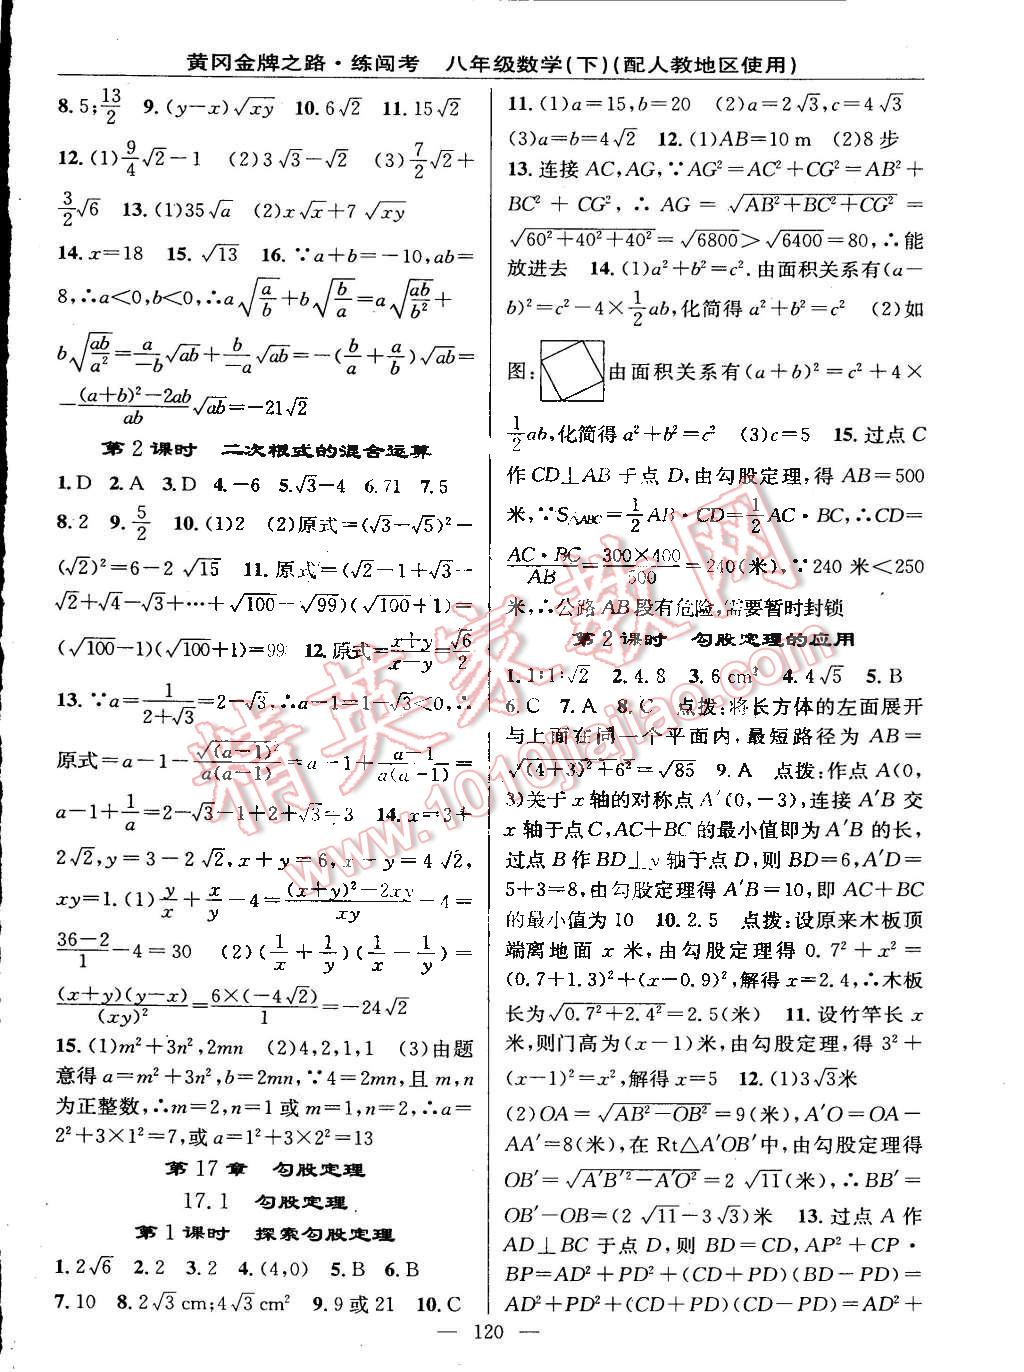 黄冈金牌之路·练闯考 八年级数学(下)(配人教地区使用)
8. 5; 13/2 9. (y-x)√xy 10. 6√2 11. 15√2
12. (1) 9/4 √2-1 (2) 3√3-√2 (3) 7/2 √2+
3/2 √6 13. (1) 35√a (2) x√x+7√xy
14. x=18 15. √13 16. ∵a+b=-10, ab=
8, ∴a<0, b<0, ∴a√(a/b)+b√(b/a)=a√(ab/b²)+
b√(ab/a²)=a/-b √ab+b/-a √ab=-(b/a+a/b)√ab=
-((a+b)²-2ab)/ab √ab=-21√2
第2课时 二次根式的混合运算
1. D 2. A 3. D 4. -6 5. √3-4 6. 71 7. 5
8. 2 9. 5/2 10. (1)2 (2)原式=(√3-√5)²-
(√2)²=6-2√15 11. 原式=(√2-1+√3-
√2+√4-√3+…+√100-√99)(√100+1)=
(√100-1)(√100+1)=99 12. 原式=(x+y)/(x-y)=√6/2
13. ∵a=1/(2+√3)=2-√3, ∴a-1=1-√3<0, ∴
原式=a-1-√(a-1)²/a(a-1)=a-1+(a-1)/a(a-1)=
a-1+1/a=2-√3-1+2+√3=3 14. x=3+
2√2, y=3-2√2, x+y=6, x-y=4√2,
xy=1. (1) y/x+x/y-4=((x+y)²-2xy)/xy-4=
(36-2)/1-4=30 (2)(1/x+1/y)(1/x-1/y)=
(x+y)(y-x)/(xy)²=6×(-4√2)/1=-24√2
15. (1)m²+3n², 2mn (2)4,2,1,1 (3)由题
意得a=m²+3n², b=2mn, ∵4=2mn, 且m,n
为正整数, ∴m=2,n=1或m=1,n=2, ∴a=
2²+3×1²=7, 或a=1²+3×2²=13
第17章 勾股定理
17.1 勾股定理
第1课时 探索勾股定理
1. 2√6 2. 2 3. 2 4. (4,0) 5. B 6. B
7. 10 8. 2√3 cm; 4√3 cm² 9. 9或21 10. C
11. (1)a=15, b=20 (2)a=2√3, c=4√3
(3)a=b=4√2 12. (1)AB=10 m (2)8步
13. 连接AC, AG, ∵AG²=AC²+CG²=AB²+
BC²+CG², ∴AG=√(AB²+BC²+CG²)=
√(60²+40²+40²)=√6800>√6400=80, ∴能
放进去 14. (1)a²+b²=c². 由面积关系有(a-
b)²=c²-4×1/2 ab, 化简得a²+b²=c² (2)如
图: 由面积关系有(a+b)²=c²+4×
1/2 ab, 化简得a²+b²=c² (3)c=5 15. 过点C
作CD⊥AB于点D, 由勾股定理, 得AB=500
米, ∵S△ABC=1/2 AB·CD=1/2 AC·BC, ∴CD=
AC·BC/AB=300×400/500=240(米), ∵240米<250
米, ∴公路AB段有危险, 需要暂时封锁
第2课时 勾股定理的应用
1. 1∶1∶√2 2. 4.8 3. 6 cm² 4. 4√5 5. B
6. C 7. A 8. C 点拨:将长方体的左面展开
与上面在同一个平面内, 最短路径为AB=
√((4+3)²+6²)=√85 9. A 点拨:作点A(0,
3)关于x轴的对称点A′(0,-3), 连接A′B交
x轴于点C, AC+BC的最小值即为A′B的长,
过点B作BD⊥y轴于点D, 则BD=6, A′D=
5+3=8, 由勾股定理得A′B=10, 即AC+BC
的最小值为10 10. 2.5 点拨:设原来木板顶
端离地面x米, 由勾股定理得0.7²+x²=
(0.7+1.3)²+(x-0.9)², 解得x=2.4, ∴木板
长为√(0.7²+2.4²)=2.5(米) 11. 设竹竿长x
米, 则门高为(x-1)米, 由勾股定理, 得3²+
(x-1)²=x², 解得x=5 12. (1)3√3米
(2)OA=√(AB²-OB²)=9(米), A′O=OA-
AA′=8(米), 在Rt△A′OB′中, 由勾股定理得
OB′=√(A′B′²-A′O²)=2√11(米), ∴BB′=
OB′-OB=(2√11-3√3)米 13. 过点A作
AD⊥BC于点D, 则BD=CD, AP²+CP·
BP=AD²+PD²+(CD+PD)(BD-PD)=
AD²+PD²+(CD+PD)(CD-PD)=AD²+
— 120 —
精英家教网
www.1010jiajiao.com